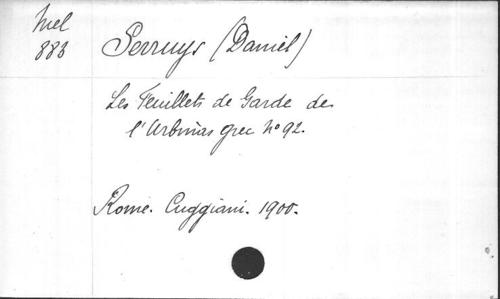 Mel
883
Serruys (Daniel)
Les Feuillets de Garde de
l'Urbinas grec No 92.
Rome. Cuggiani. 1900.